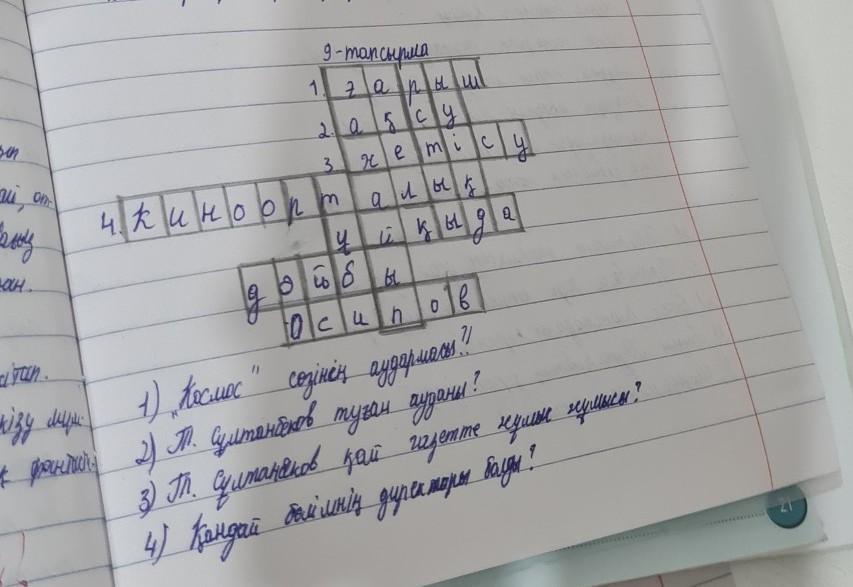 9-тапсырма
1. ғарыш
2. ақсу
3. жетісу
4. киноорталық
ұйқыда
дойбы
Осипов
1) „Космос" сөзінің аудармасы?
2) Т. Сұлтанбеков туған ауданы?
3) Т. Сұлтанбеков қай газетте жұмыс жұмысы?
4) Қандай бөлімнің директоры болды?
21